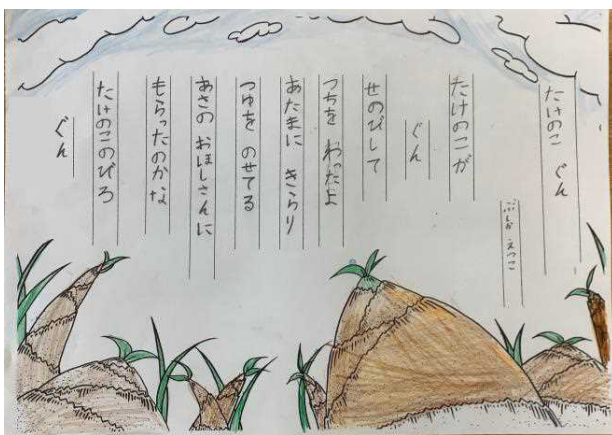 たけのこ ぐん
ぶしか えつこ
たけのこが
ぐん
せのびして
つちを わったよ
あたまに きらり
つゆを のせてる
あさの おほしさんに
もらったのかな
たけのこのびろ
ぐん